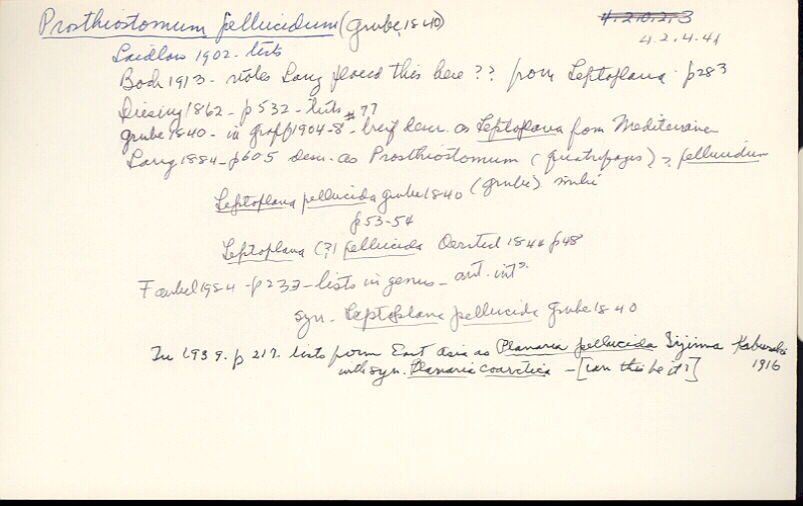 Prosthiostomum pellucidum (Grube, 1840)
4.2.0.2.3
4.2.4.41
Laidlow 1902 - lists
Bock 1913 - notes Lang placed this here ?? from Leptoplana p283
Diesing 1862 - p 532 - lists #77
Grube 1840 - in Graff 1904-8 - breif descr. as Leptoplana from Mediteranian
Lang 1884 - p605 descr. as Prosthiostomum (?) pellucidum
(Grube) mihi
Leptoplana pellucida Grube 1840
p53-54
Leptoplana (?) pellucida Oersted 1844 p48
Faubel 1984 - p 233 - lists in genus - ant. int?
syn. Leptoplana pellucida Grube 1840
Tu 1939. p 217. lists from East Asia as Planaria pellucida Iijima Kaburaki
1916
with syn. Planaria coarctica - [can this be it?]